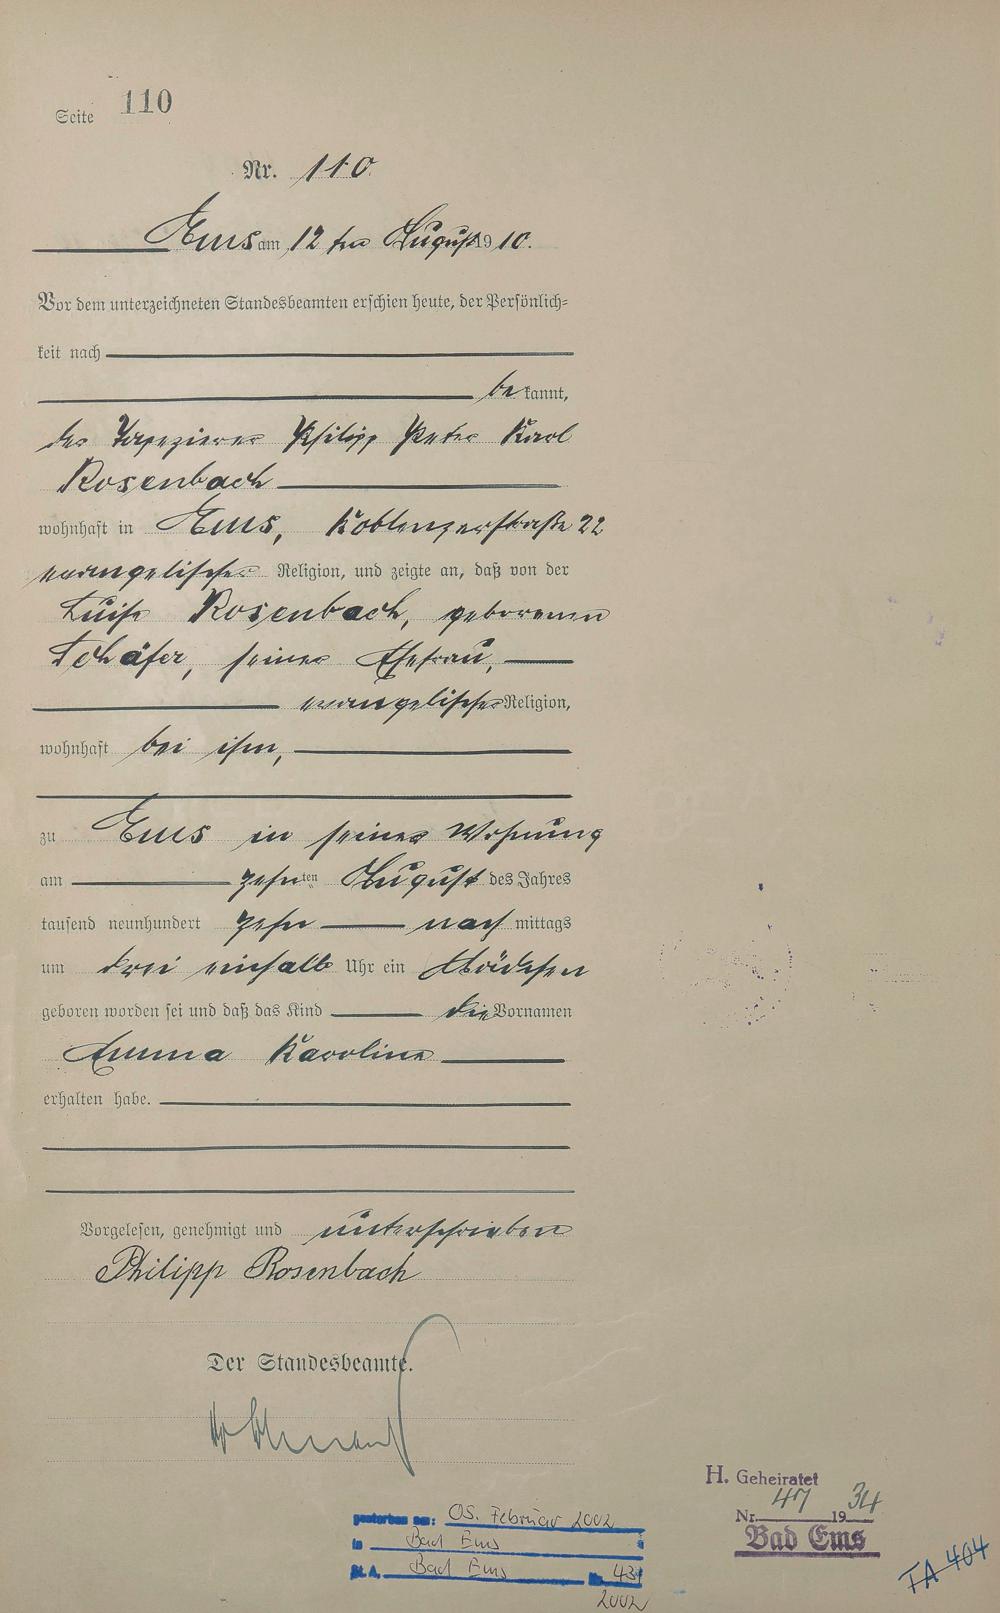 Seite 110
Nr. 110
Ems am 12ten August 1910.
Vor dem unterzeichneten Standesbeamten erschien heute, der Persönlich=
keit nach
bekannt,
der Tapezierer Philipp Peter Karl
Rosenbach
wohnhaft in Ems, Koblenzerstraße 22
evangelischer Religion, und zeigte an, daß von der
Luise Rosenbach, geborenen
Schäfer, seiner Ehefrau,
evangelischer Religion,
wohnhaft bei ihm,
zu Ems in seiner Wohnung
am zehnten August des Jahres
tausend neunhundert zehn nachmittags
um drei einhalb Uhr ein Mädchen
geboren worden sei und daß das Kind die Vornamen
Emma Karoline
erhalten habe.
Vorgelesen, genehmigt und unterschrieben
Philipp Rosenbach
Der Standesbeamte.
H. Geheiratet
Nr. 47 1934
Bad Ems
gestorben am: 05. Februar 2002
in Bad Ems
St. A. Bad Ems Nr. 43/
2002
TA 404